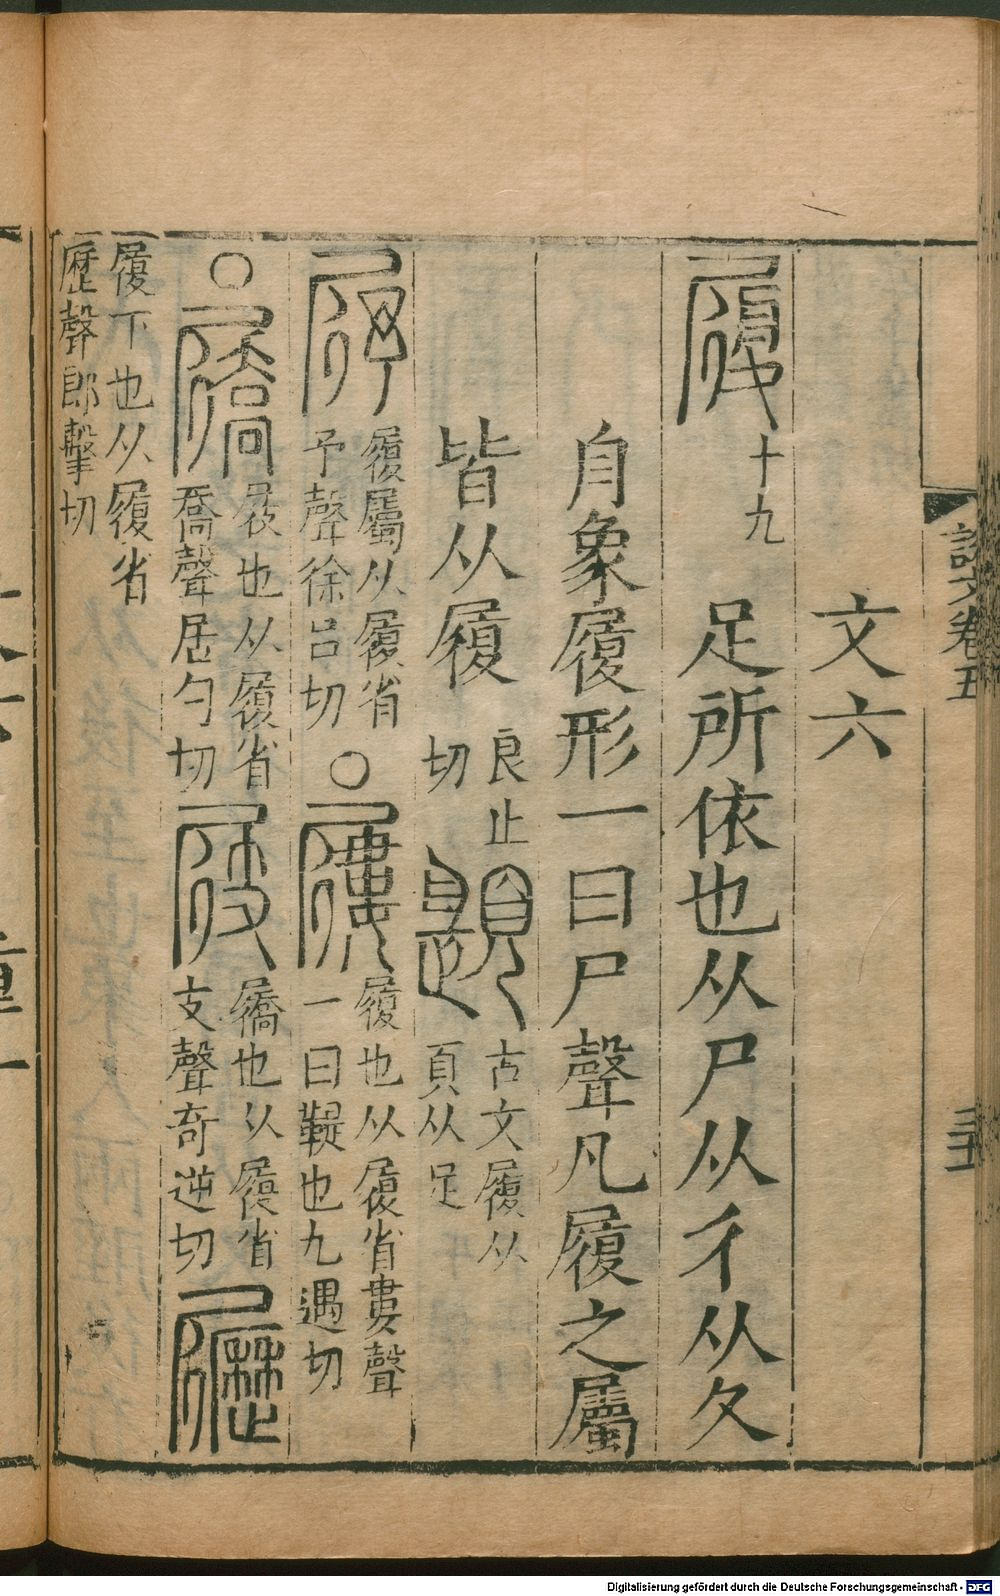 說文卷五
文六
履 十九 足所依也从尸从彳从夊
舟象履形一曰尸聲凡履之屬
皆从履 良止切 𩕎 古文履从頁从足
履屬从履省予聲徐呂切 ○ 屨 履也从履省婁聲一曰鞮也九遇切
○ 屩 屐也从履省喬聲居勺切 屐 屩也从履省支聲奇逆切
履下也从履省歷聲郎擊切
Digitalisierung gefördert durch die Deutsche Forschungsgemeinschaft - DFG